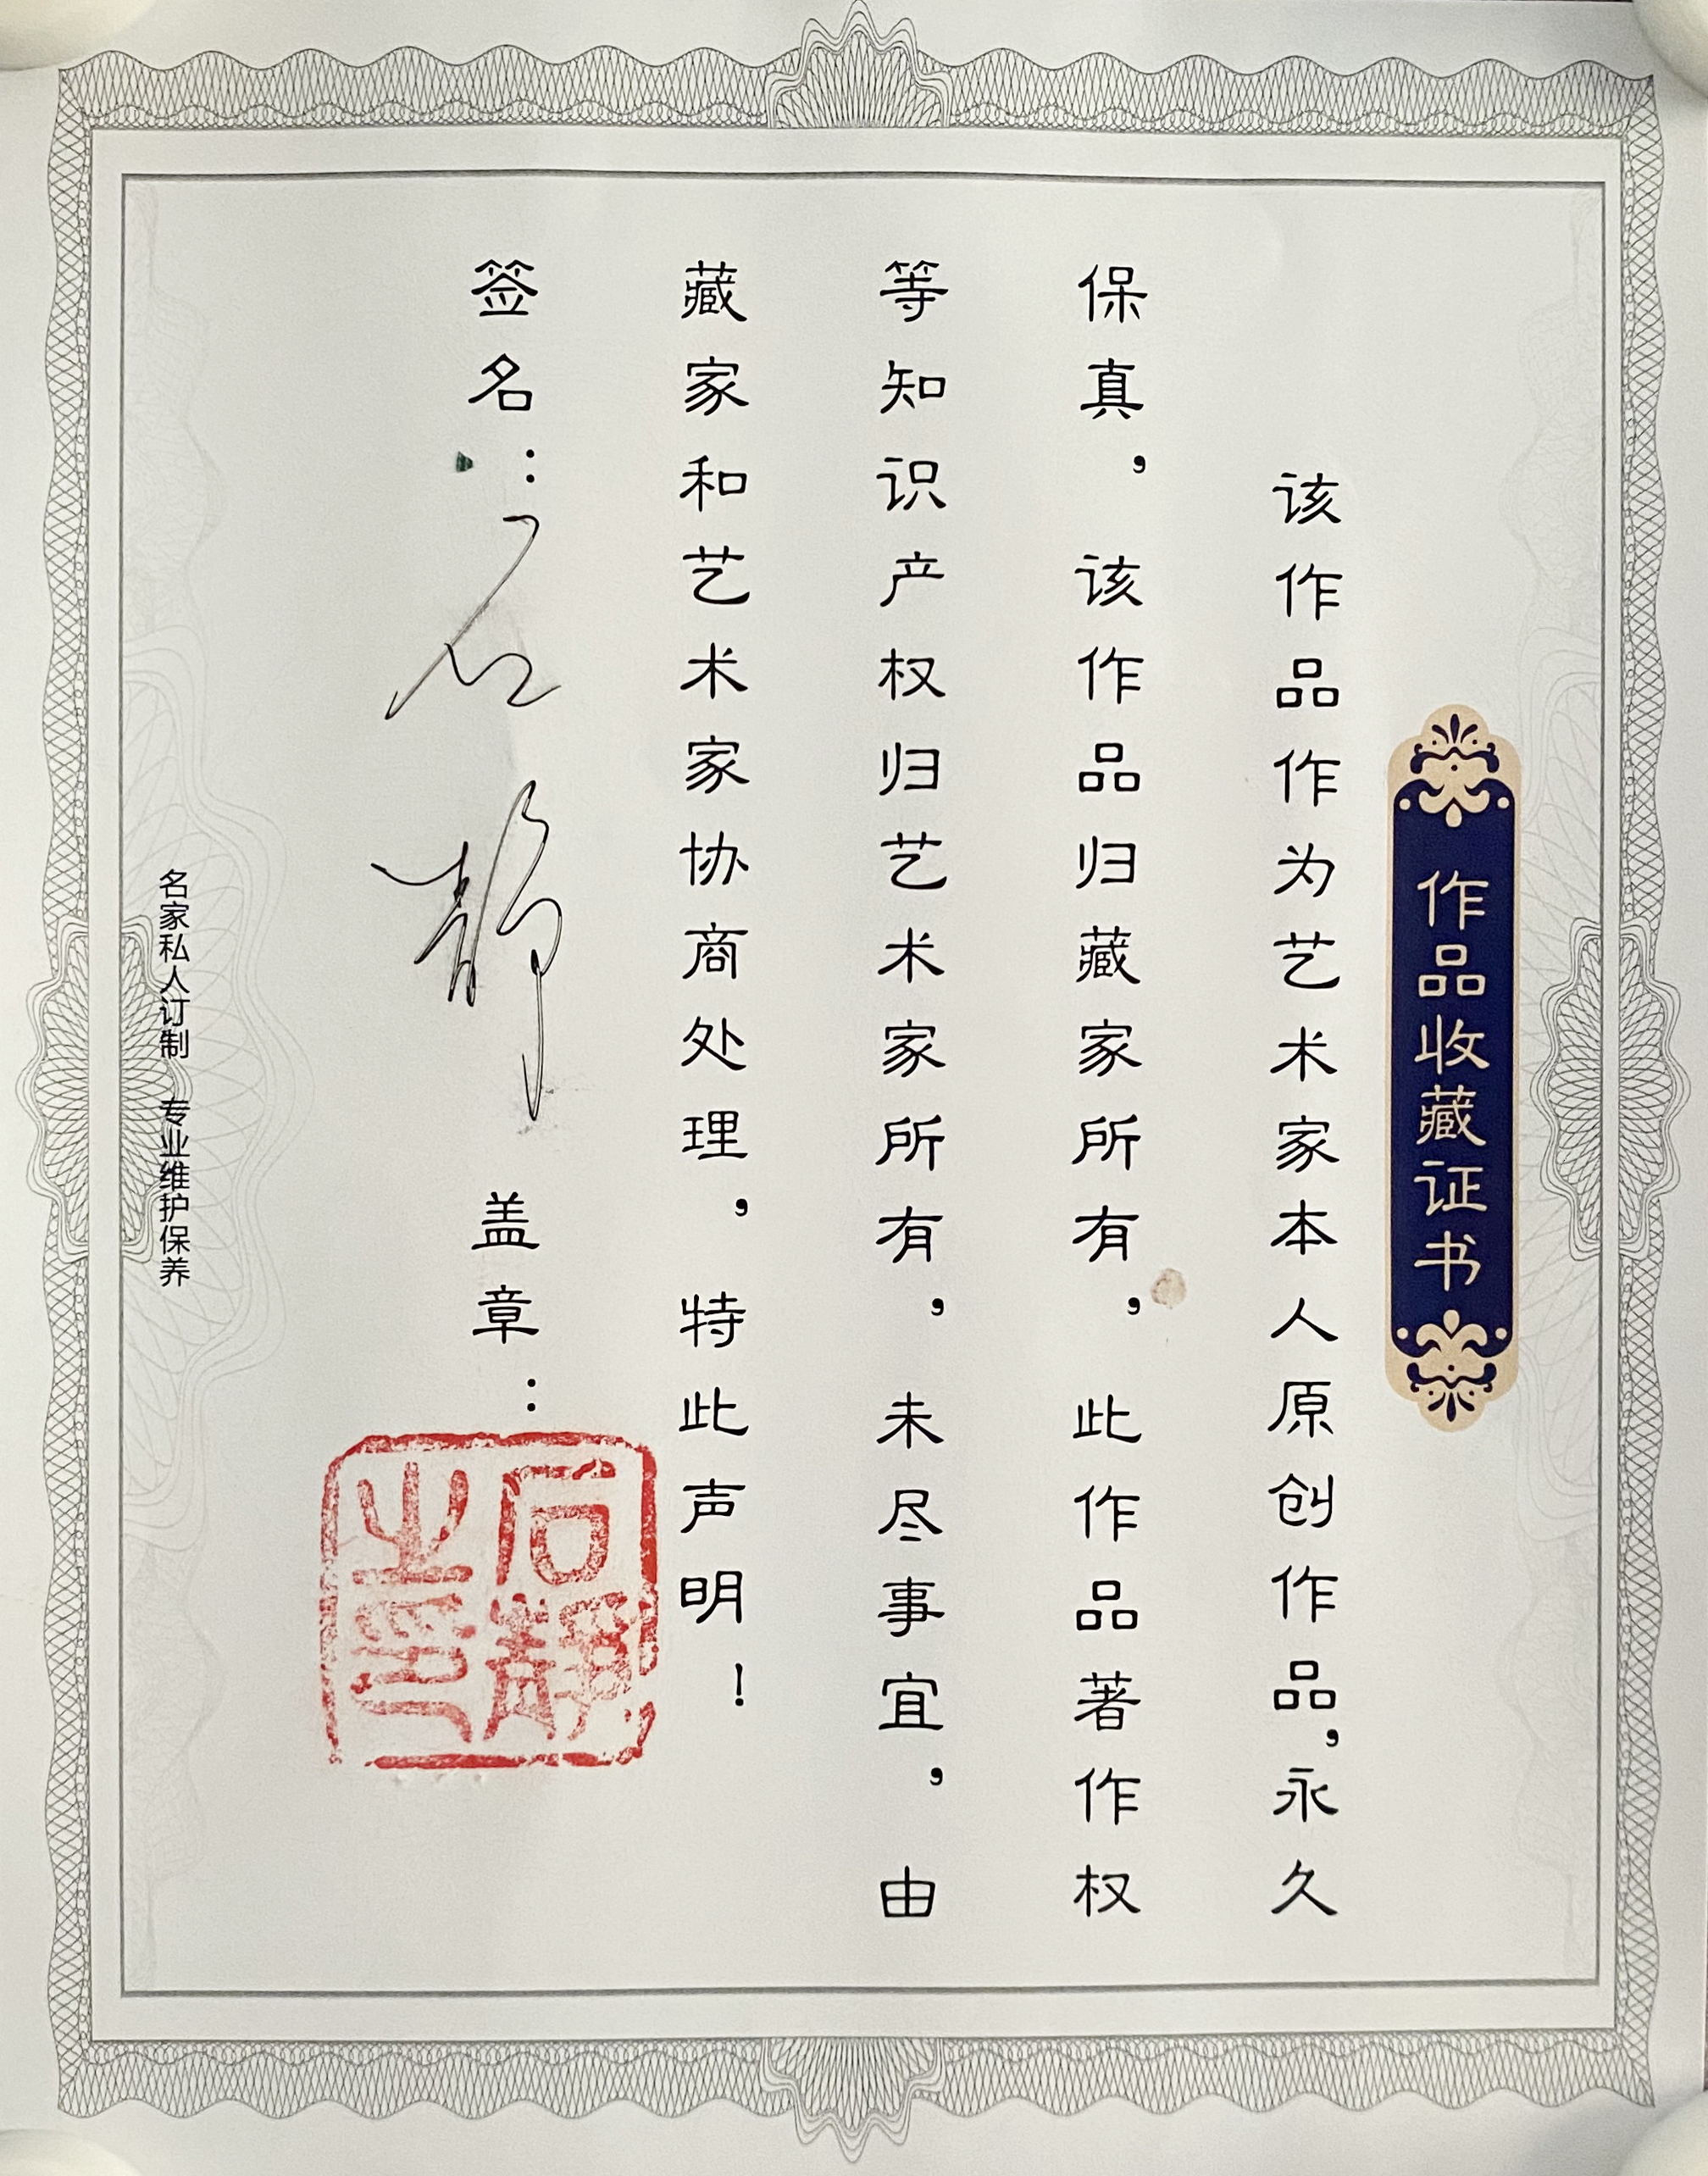 作品收藏证书
该作品作为艺术家本人原创作品，永久
保真，该作品归藏家所有，此作品著作权
等知识产权归艺术家所有，未尽事宜，由
藏家和艺术家协商处理，特此声明！
签名：石静 盖章：
石靜
之印
名家私人订制 专业维护保养